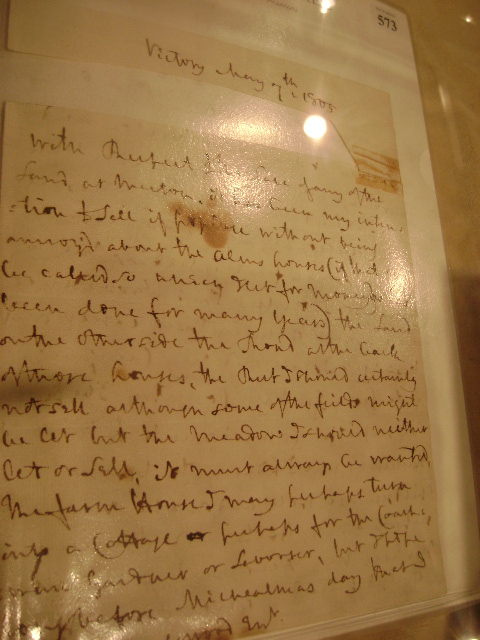 573
Victory May 7th 1805
With Respect to the Sale of any of the
Land at Merton, it has been my inten
tion to sell if possible without being
annoy'd about the Alms houses (if
be called so which let for money
been done for many Years) the Land
on the other side the Road at the back
of those houses, the Rest I should certainly
not sell although some of the fields might
be let but the Meadow I should neither
let or sell, it must always be wanted
The farm House I may perhaps turn
into a Cottage or perhaps for the Coach
Gardner or Labourer, but I hope
before Michaelmas day